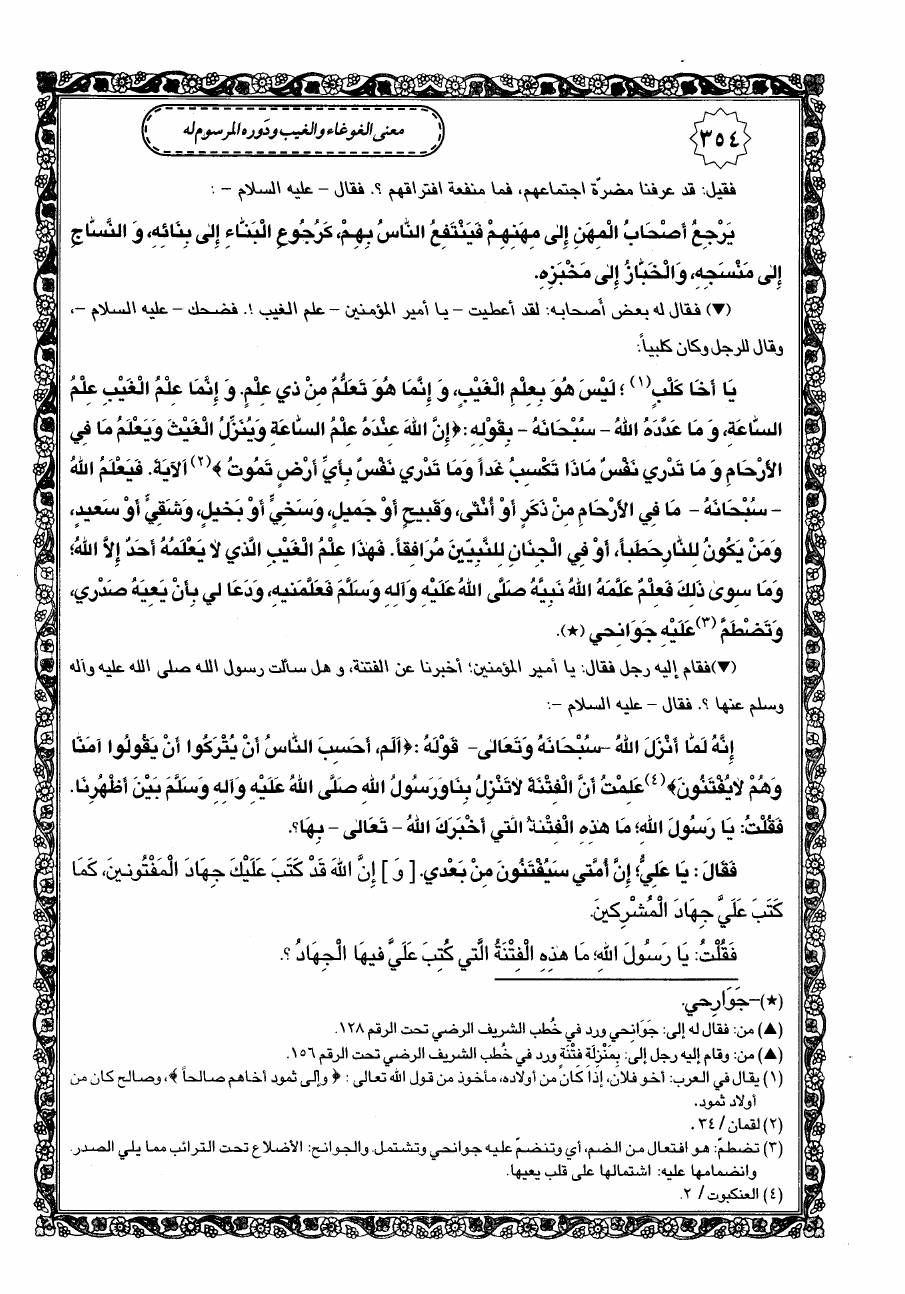 ٣٥٤
معنى الغوغاء والغيب ودوره المرسوم له
فقيل: قد عرفنا مضرّة اجتماعهم، فما منفعة افتراقهم ؟. فقال – عليه السلام – :
يَرْجِعُ أَصْحَابُ الْمِهَنِ إِلىٰ مِهَنِهِمْ فَيَنْتَفِعُ النَّاسُ بِهِمْ، كَرُجُوعِ الْبَنَّاءِ إِلىٰ بِنَائِهِ، وَ النَّسَّاجِ
إِلىٰ مَنْسَجِهِ، وَالْخَبَّازُ إِلىٰ مَخْبَزِهِ.
(▼) فقال له بعض أصحابه: لقد أعطيت – يا أمير المؤمنين – علم الغيب !. فضحك – عليه السلام –،
وقال للرجل وكان كلبياً:
يَا أَخَا كَلْبٍ(١) ؛ لَيْسَ هُوَ بِعِلْمِ الْغَيْبِ، وَ إِنَّمَا هُوَ تَعَلُّمٌ مِنْ ذي عِلْمٍ. وَ إِنَّمَا عِلْمُ الْغَيْبِ عِلْمُ
السَّاعَةِ، وَ مَا عَدَّدَهُ اللهُ – سُبْحَانَهُ – بِقَوْلِهِ :﴿إِنَّ اللهَ عِنْدَهُ عِلْمُ السَّاعَةِ وَيُنَزِّلُ الْغَيْثَ وَيَعْلَمُ مَا فِي
الأَرْحَامِ وَ مَا تَدْري نَفْسٌ مَاذَا تَكْسِبُ غَداً وَمَا تَدْري نَفْسٌ بِأَيِّ أَرْضٍ تَمُوتُ ﴾(٢) اَلآيَةَ. فَيَعْلَمُ اللهُ
– سُبْحَانَهُ – مَا فِي الأَرْحَامِ مِنْ ذَكَرٍ أَوْ أُنْثىٰ، وَقَبيحٍ أَوْ جَميلٍ، وَسَخِيٍّ أَوْ بَخيلٍ، وَشَقِيٍّ أَوْ سَعيدٍ،
وَمَنْ يَكُونُ لِلنَّارِحَطَباً، أَوْ فِي الْجِنَانِ لِلنَّبِيّينَ مُرَافِقاً. فَهٰذَا عِلْمُ الْغَيْبِ الَّذي لَا يَعْلَمُهُ أَحَدٌ إِلَّا اللهُ؛
وَمَا سِوىٰ ذٰلِكَ فَعِلْمٌ عَلَّمَهُ اللهُ نَبِيَّهُ صَلَّى اللهُ عَلَيْهِ وَآلِهِ وَسَلَّمَ فَعَلَّمَنيهِ، وَدَعَا لي بِأَنْ يَعِيَهُ صَدْري،
وَتَضْطَمَّ(٣) عَلَيْهِ جَوَانِحي (★).
(▼)فقام إليه رجل فقال: يا أمير المؤمنين؛ أخبرنا عن الفتنة، و هل سألت رسول الله صلى الله عليه وآله
وسلم عنها ؟. فقال – عليه السلام –:
إِنَّهُ لَمَّا أَنْزَلَ اللهُ –سُبْحَانَهُ وَتَعَالىٰ– قَوْلَهُ :﴿اَلَم، أَحَسِبَ النَّاسُ أَنْ يُتْرَكُوا أَنْ يَقُولُوا آمَنَّا
وَهُمْ لَايُفْتَنُونَ﴾(٤) عَلِمْتُ أَنَّ الْفِتْنَةَ لَاتَنْزِلُ بِنَاوَرَسُولُ اللهِ صَلَّى اللهُ عَلَيْهِ وَآلِهِ وَسَلَّمَ بَيْنَ أَظْهُرِنَا.
فَقُلْتُ: يَا رَسُولَ اللهِ؛ مَا هٰذِهِ الْفِتْنَةُ الَّتي أَخْبَرَكَ اللهُ – تَعَالىٰ – بِهَا؟.
فَقَالَ : يَا عَلِيُّ؛ إِنَّ أُمَّتي سَيُفْتَنُونَ مِنْ بَعْدي. [ وَ ] إِنَّ اللهَ قَدْ كَتَبَ عَلَيْكَ جِهَادَ الْمَفْتُونينَ، كَمَا
كَتَبَ عَلَيَّ جِهَادَ الْمُشْرِكينَ.
فَقُلْتُ: يَا رَسُولَ اللهِ؛ مَا هٰذِهِ الْفِتْنَةُ الَّتي كُتِبَ عَلَيَّ فيهَا الْجِهَادُ ؟.
(★)–جَوَارِحي.
(▲) من: فقال له إلى: جَوَانِحي ورد في خُطب الشريف الرضي تحت الرقم ١٢٨.
(▲) من: وقام إليه رجل إلى: بِمَنْزِلَةِ فِتْنَةٍ ورد في خُطب الشريف الرضي تحت الرقم ١٥٦.
(١) يقال في العرب: أخو فلان، إذا كان من أولاده، مأخوذ من قول الله تعالى : ﴿ وإلى ثمود أخاهم صالحاً ﴾، وصالح كان من
أولاد ثمود.
(٢) لقمان / ٣٤ .
(٣) تضطمّ: هو افتعال من الضم، أي وتنضمّ عليه جوانحي وتشتمل. والجوانح: الأضلاع تحت الترائب مما يلي الصدر.
وانضمامها عليه: اشتمالها على قلب يعيها.
(٤) العنكبوت / ٢.